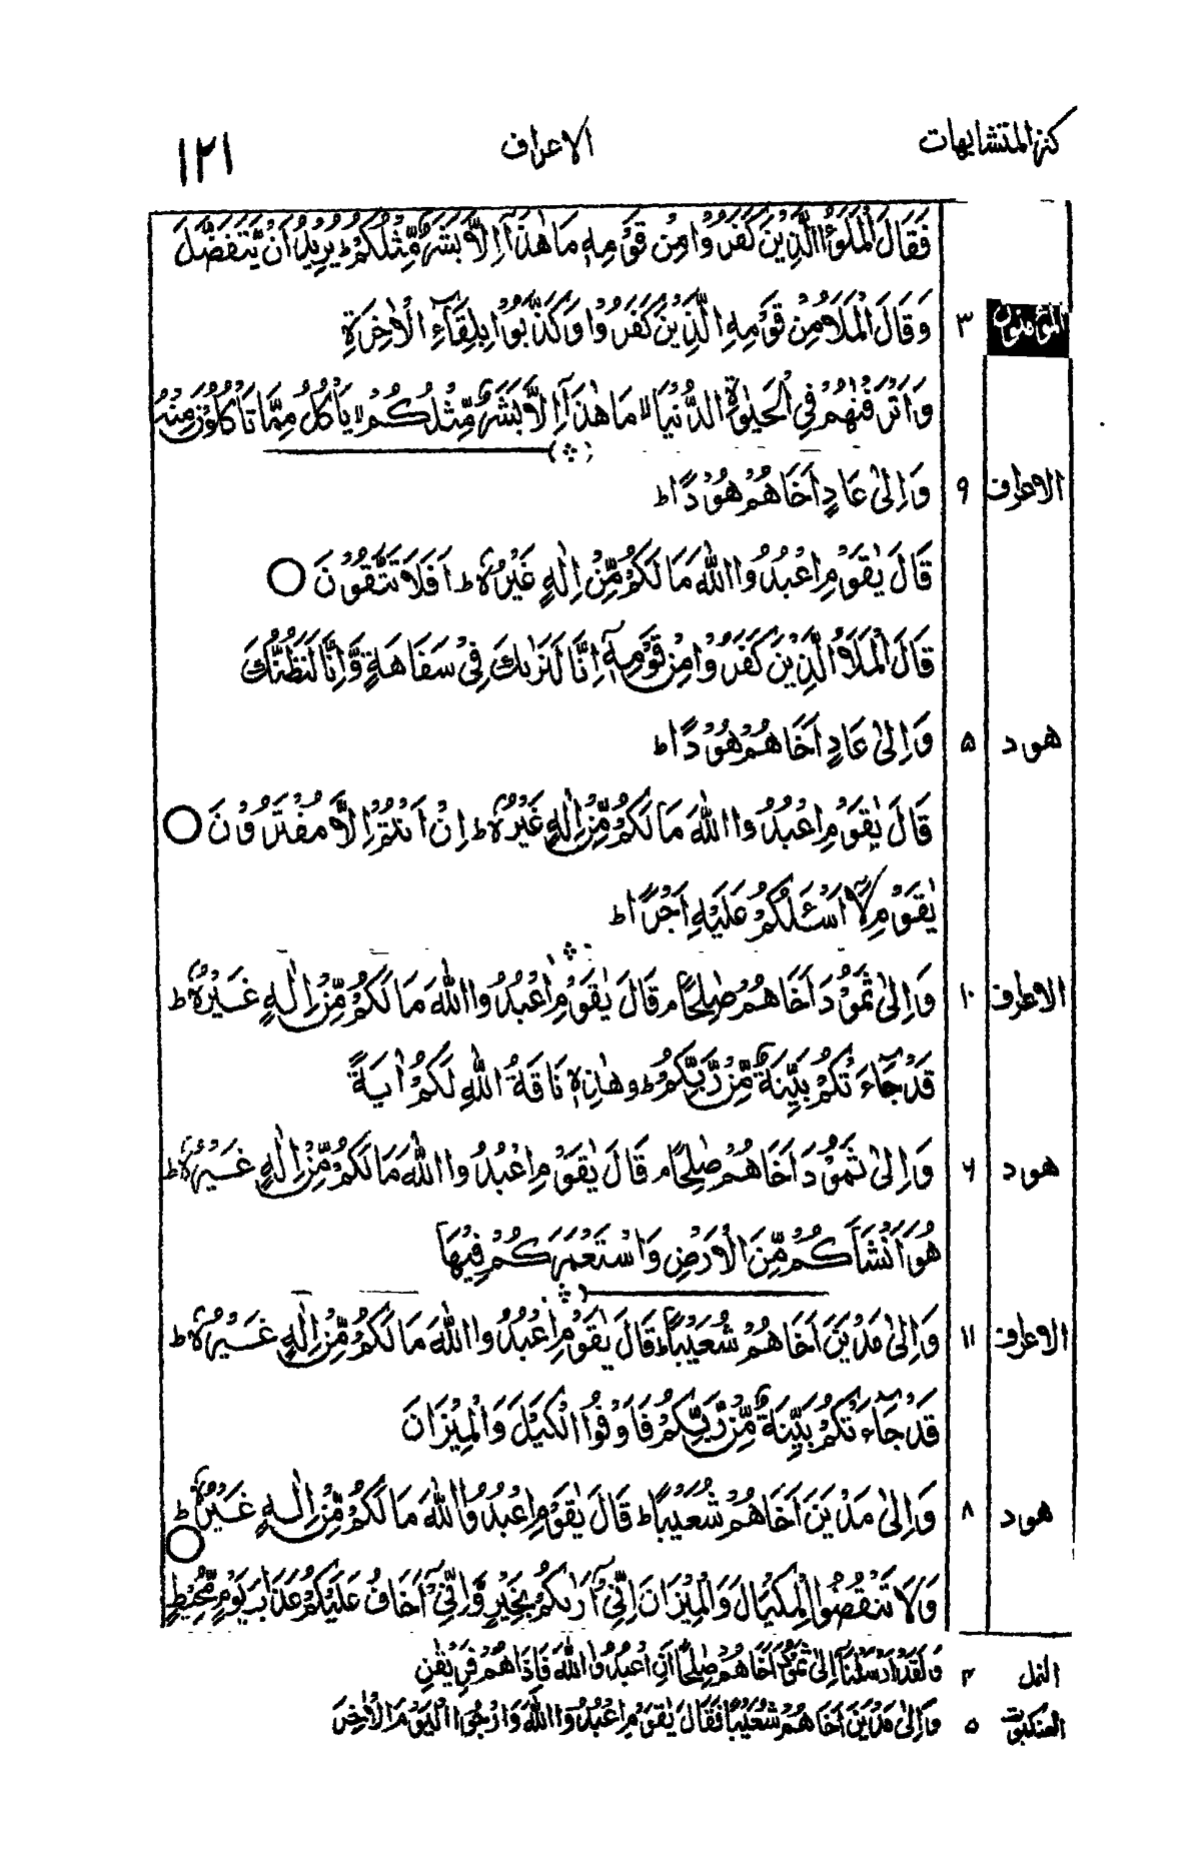 كنز المتشابهات الاعراف ١٢١
فَقَالَ الْمَلَؤُا الَّذِيْنَ كَفَرُوْا مِنْ قَوْمِهٖ مَا هٰذَآ اِلَّا بَشَرٌ مِّثْلُكُمْ ط يُرِيْدُ اَنْ يَّتَفَضَّلَ
المؤمنون ٣ وَقَالَ الْمَلَاُ مِنْ قَوْمِهِ الَّذِيْنَ كَفَرُوْا وَكَذَّبُوْا بِلِقَآءِ الْاٰخِرَةِ
وَاَتْرَفْنٰهُمْ فِي الْحَيٰوةِ الدُّنْيَا لا مَا هٰذَآ اِلَّا بَشَرٌ مِّثْلُكُمْ لا يَاْكُلُ مِمَّا تَاْكُلُوْنَ مِنْهُ
الاعراف ٩ وَاِلٰى عَادٍ اَخَاهُمْ هُوْدًا ط
قَالَ يٰقَوْمِ اعْبُدُوا اللّٰهَ مَا لَكُمْ مِّنْ اِلٰهٍ غَيْرُهٗ ط اَفَلَا تَتَّقُوْنَ ○
قَالَ الْمَلَاُ الَّذِيْنَ كَفَرُوْا مِنْ قَوْمِهٖٓ اِنَّا لَنَرٰىكَ فِيْ سَفَاهَةٍ وَّاِنَّا لَنَظُنُّكَ
هود ۵ وَاِلٰى عَادٍ اَخَاهُمْ هُوْدًا ط
قَالَ يٰقَوْمِ اعْبُدُوا اللّٰهَ مَا لَكُمْ مِّنْ اِلٰهٍ غَيْرُهٗ ط اِنْ اَنْتُمْ اِلَّا مُفْتَرُوْنَ ○
يٰقَوْمِ لَآ اَسْـَٔلُكُمْ عَلَيْهِ اَجْرًا ط
الاعراف ١٠ وَاِلٰى ثَمُوْدَ اَخَاهُمْ صٰلِحًا م قَالَ يٰقَوْمِ اعْبُدُوا اللّٰهَ مَا لَكُمْ مِّنْ اِلٰهٍ غَيْرُهٗ ط
قَدْ جَآءَتْكُمْ بَيِّنَةٌ مِّنْ رَّبِّكُمْ ط وهٰذِهٖ نَاقَةُ اللّٰهِ لَكُمْ اٰيَةً
هود ۶ وَاِلٰى ثَمُوْدَ اَخَاهُمْ صٰلِحًا م قَالَ يٰقَوْمِ اعْبُدُوا اللّٰهَ مَا لَكُمْ مِّنْ اِلٰهٍ غَيْرُهٗ ط
هُوَ اَنْشَاَكُمْ مِّنَ الْاَرْضِ وَاسْتَعْمَرَكُمْ فِيْهَا
الاعراف ١١ وَاِلٰى مَدْيَنَ اَخَاهُمْ شُعَيْبًا ط قَالَ يٰقَوْمِ اعْبُدُوا اللّٰهَ مَا لَكُمْ مِّنْ اِلٰهٍ غَيْرُهٗ ط
قَدْ جَآءَتْكُمْ بَيِّنَةٌ مِّنْ رَّبِّكُمْ فَاَوْفُوا الْكَيْلَ وَالْمِيْزَانَ
هود ٨ وَاِلٰى مَدْيَنَ اَخَاهُمْ شُعَيْبًا ط قَالَ يٰقَوْمِ اعْبُدُوا اللّٰهَ مَا لَكُمْ مِّنْ اِلٰهٍ غَيْرُهٗ ط ○
وَلَا تَنْقُصُوا الْمِكْيَالَ وَالْمِيْزَانَ اِنِّيْٓ اَرٰىكُمْ بِخَيْرٍ وَّاِنِّيْٓ اَخَافُ عَلَيْكُمْ عَذَابَ يَوْمٍ مُّحِيْطٍ
النمل ۴ وَلَقَدْ اَرْسَلْنَآ اِلٰى ثَمُوْدَ اَخَاهُمْ صٰلِحًا اَنِ اعْبُدُوا اللّٰهَ فَاِذَا هُمْ فَرِيْقٰنِ
العنكبوت ۵ وَاِلٰى مَدْيَنَ اَخَاهُمْ شُعَيْبًا فَقَالَ يٰقَوْمِ اعْبُدُوا اللّٰهَ وَارْجُوا الْيَوْمَ الْاٰخِرَ